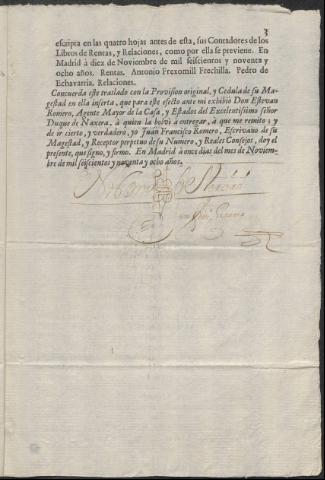 3
escripta en las quatro hojas antes de esta, sus Contadores de los
Libros de Rentas, y Relaciones, como por ella se previene. En
Madrid à diez de Noviembre de mil seiscientos y noventa y
ocho años. Rentas. Antonio Frexomill Frechilla. Pedro de
Echavarria. Relaciones.
Concuerda este traslado con la Provision original, y Cedula de su Ma-
gestad en ella inserta, que para este efecto ante mi exhibiò Don Estevan
Romero, Agente Mayor de la Casa, y Estados del Excelentissimo señor
Duque de Naxera, à quien la bolvi à entregar, à que me remito; y
de ir cierto, y verdadero, yo Juan Francisco Romero, Escrivano de su
Magestad, y Receptor perpetuo de su Numero, y Reales Consejos, doy el
presente, que signo, y firmo. En Madrid à once dias del mes de Noviem-
bre de mil seiscientos y noventa y ocho años.